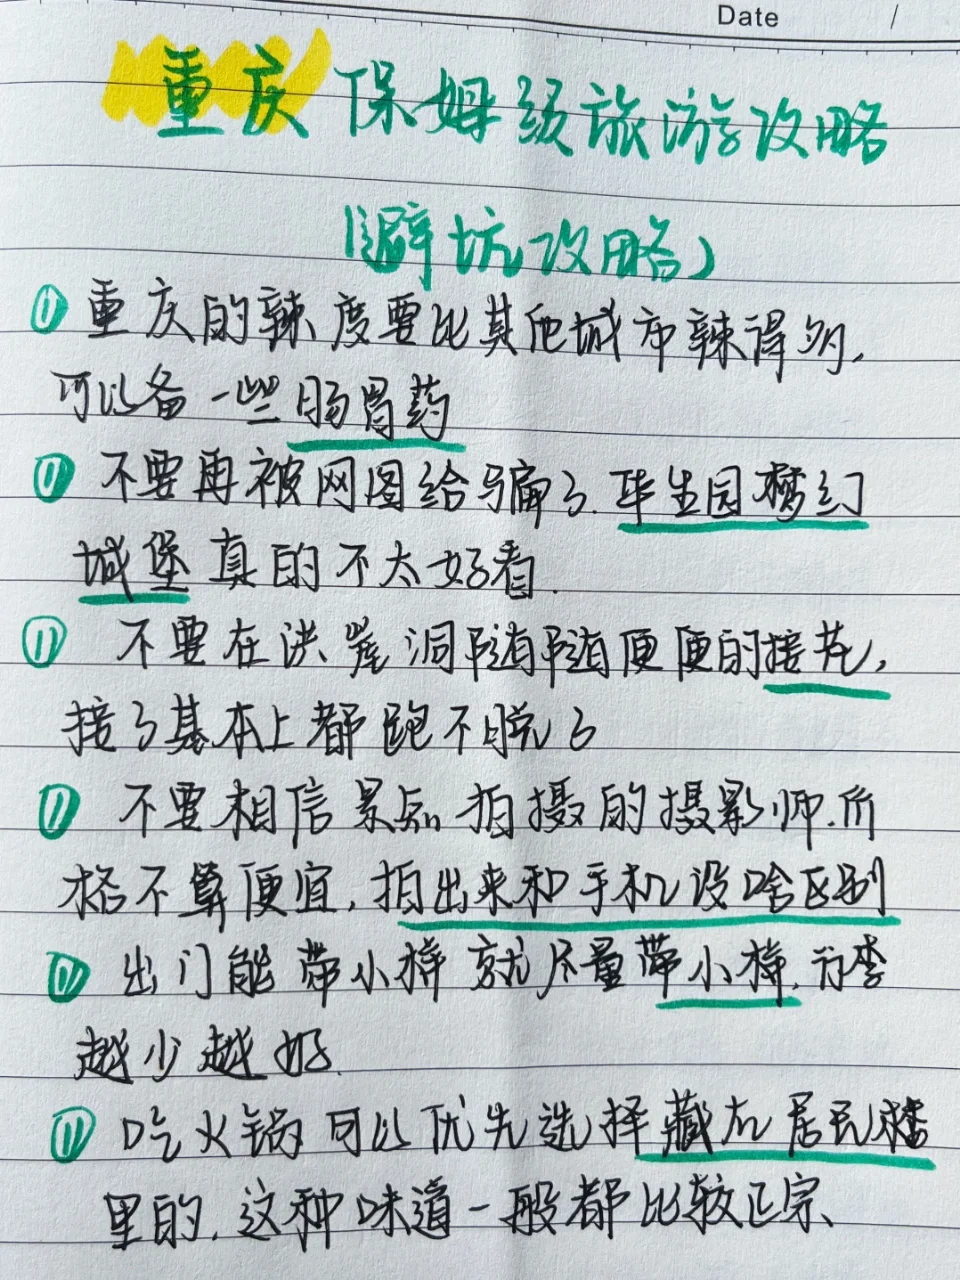 Date /
重庆保姆级旅游攻略
(避坑攻略)
重庆的辣度要比其他城市辣得多,
可以备一些肠胃药
不要再被网图给骗了.毕生园梦幻
城堡真的不太好看.
不要在洪崖洞随随便便的接花,
接了基本上都跑不脱了
不要相信景点拍摄的摄影师.价
格不算便宜,拍出来和手机没啥区别
出门能带小样就尽量带小样.行李
越少越好.
吃火锅可以优先选择藏在居民楼
里的,这种味道一般都比较正宗、